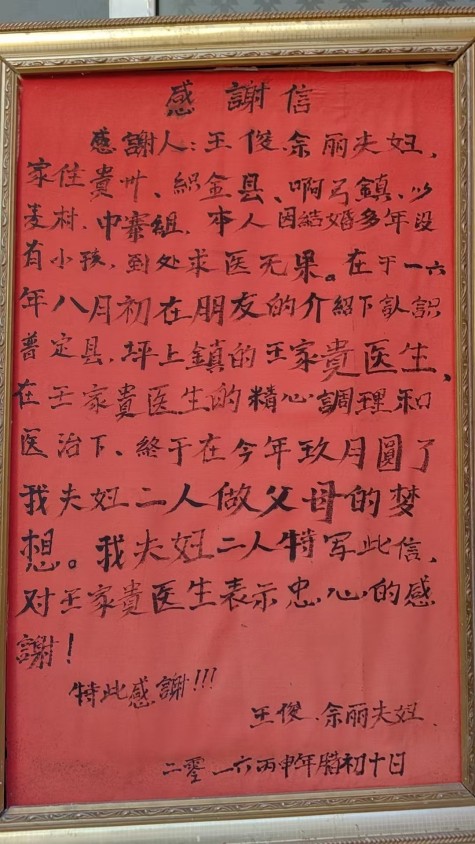 感謝信
感謝人:王俊.余丽夫妇、
家住貴州、織金县、啊弓鎮、以
麦村.中寨組.本人因結婚多年没
有小孩,到处求医无果。在于一六
年八月初在朋友的介紹下認識
普定县.坪上鎮的王家貴医生、
在王家貴医生的精心調理和
医治下、終于在今年玖月圓了
我夫妇二人做父母的梦
想。我夫妇二人特写此信、
对王家貴医生表示忠心的感
謝!
特此感謝!!!
王俊.余丽夫妇.
二零一六丙申年腊初十日